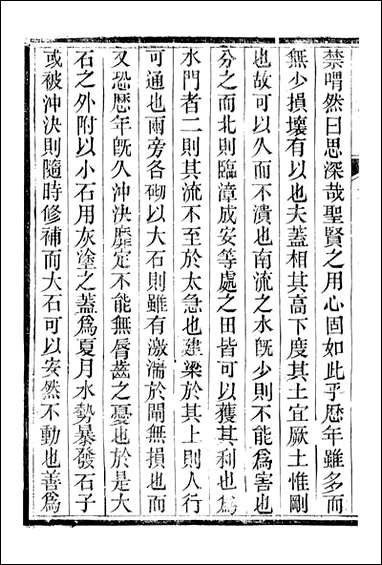 禁喟然曰思深哉聖賢之用心固如此乎歴年雖多而
無少損壞有以也夫蓋相其高下度其土宜厥土惟剛
也故可以久而不潰也南流之水旣少則不能爲害也
分之而北則臨漳成安等處之田皆可以獲其利也爲
水門者二則其流不至於太急也建梁於其上則人行
可通也兩旁各砌以大石則雖有激湍於閘無損也而
又恐歴年旣久冲決靡定不能無脣齒之憂也於是大
石之外附以小石用灰塗之蓋爲夏月水勢暴發石子
或被沖決則隨時修補而大石可以安然不動也善爲